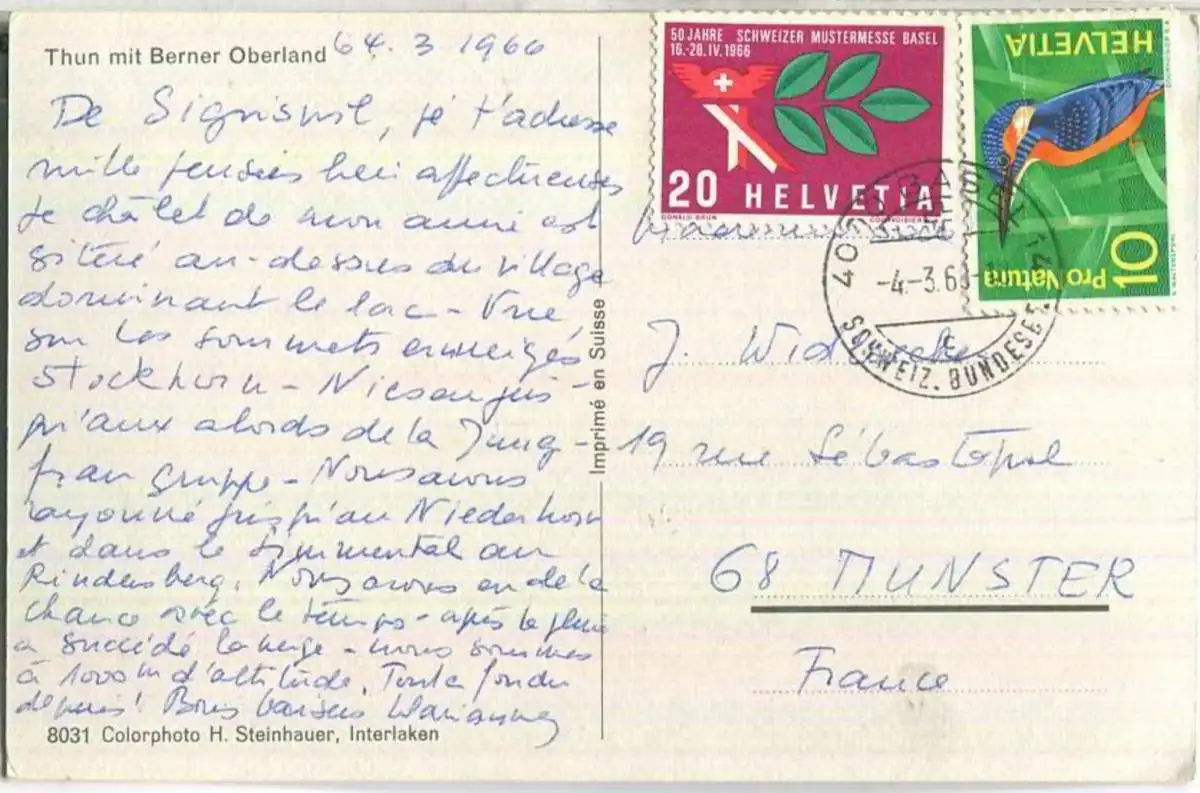 Thun mit Berner Oberland 64.3.1966
De Sigriswil, je t'adresse
mille pensées bien affectueuses
Le châlet de mon amie est
situé au-dessus du village
dominant le lac - Vue,
sur les sommets enneigés
Stockhorn - Niesen jus-
qu'aux abords de la Jung-
frau gruppe - Nous avons
rayonné jusqu'au Niederhorn
et dans le Simmental au
Rindersberg. Nous avons eu de la
chance avec le temps - après la pluie
a succédé la neige - nous sommes
à 1000 m d'altitude. Tout a fondu
depuis! Bons baisers
8031 Colorphoto H. Steinhauer, Interlaken
Imprimé en Suisse
50 JAHRE SCHWEIZER MUSTERMESSE BASEL
16.-28.IV.1966
20 HELVETIA
DONALD BRUN COURVOISIER
HELVETIA
Pro Natura 10
-4.-3.66
SCHWEIZ. BUNDESF
J.
19 rue Sébastopol
68 MUNSTER
France